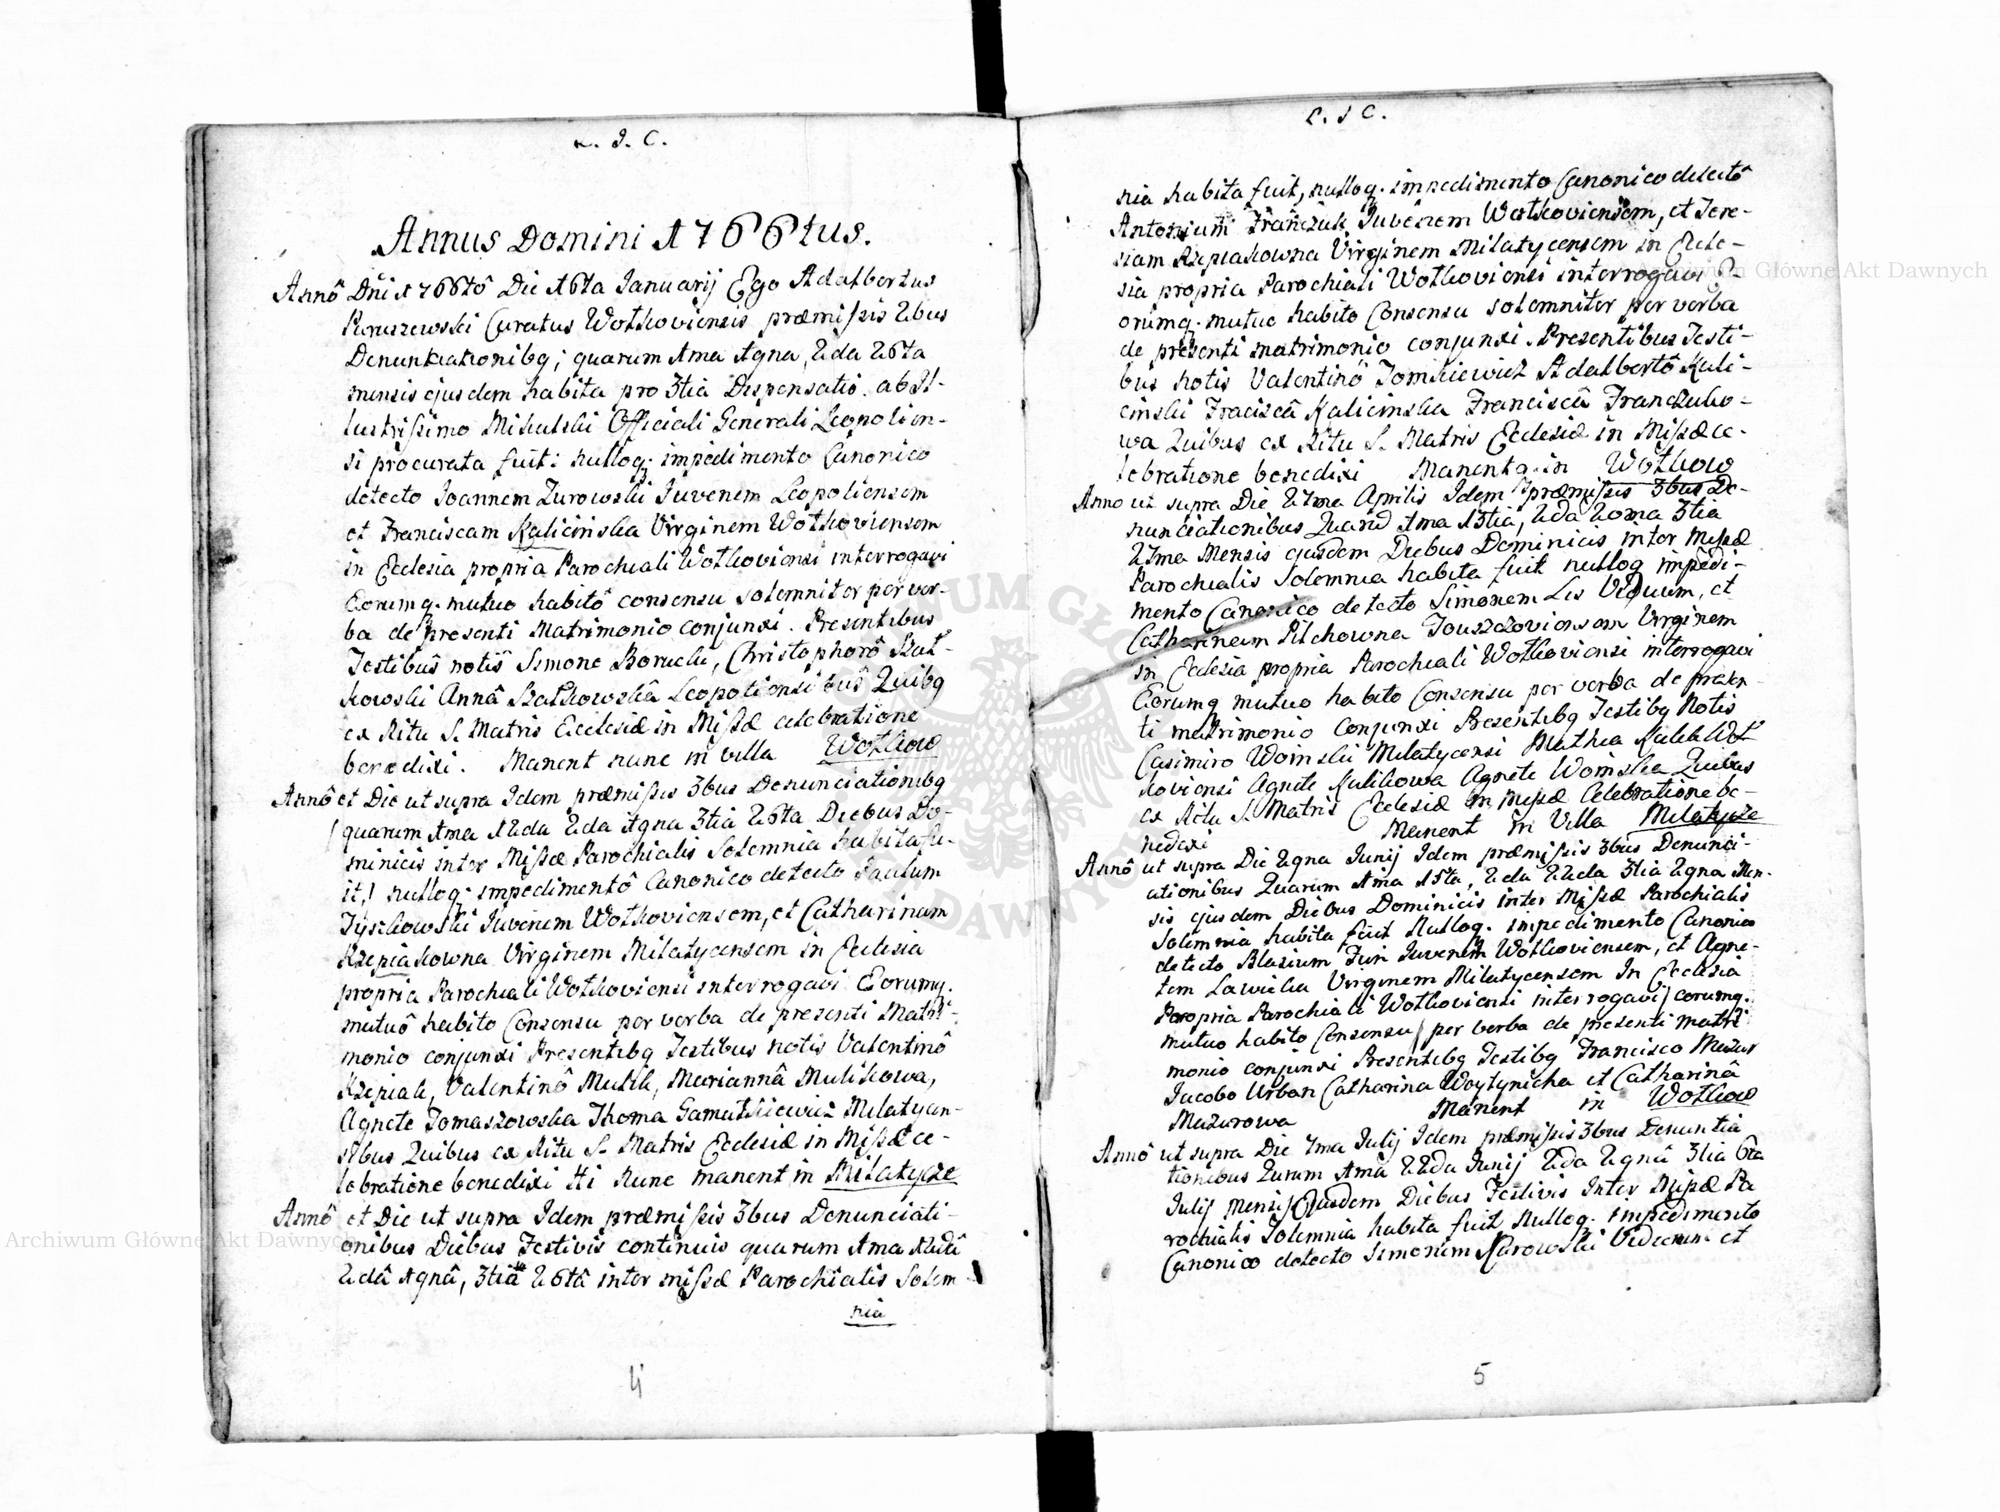 L. J. C.
Annus Domini 1766tus.
Annô Dñi 1766tô Die 16ta Januarij Ego Adalbertus
Paruszewski Curatus Wołkoviensis præmissis 2bus
Denunciationibq; quarum 1ma 1gna, 2da 26ta
mensis ejusdem habita pro 3tia Dispensatio ab Il-
lustrissimo Mikulski Officiali Generali Leopolien-
si procurata fuit: nulloq; impedimento Canonico
detecto Joannem Zurowski Juvenem Leopoliensem
et Franciscam Kalicinska Virginem Wołkoviensem
in Ecclesia propria Parochiali Wołkoviensi interrogavi
Eorumq. mutuo habitô consensu solemniter per ver-
ba de presenti Matrimonio conjunxi. Presentibus
Testibus notis Simone Boruch, Christophorô Szat-
kowski Annâ Szatkowskâ Leopoliensibus Quibq
ex Ritu S. Matris Ecclesiæ in Missæ celebratione
benedixi. Manent nunc in villa Wołkow
Annô et Die ut supra Idem præmissis 3bus Denunciationibq
(quarum 1ma 12da 2da 1gna 3tia 26ta Diebus Do-
minicis inter Missæ Parochialis Solemnia habita fu-
it,) nulloq. impedimentô Canonico detecto Paulum
Tyszkowski Juvenem Wołkoviensem, et Catharinam
Rzepiakowna Virginem Milatycensem in Ecclesia
propria Parochiali Wołkoviensi interrogavi Eorumq.
mutuô habito Consensu per verba de presenti Matri-
monio conjunxi Presentibq Testibus notis Valentinô
Rzepiak, Valentinô Mulik, Mariannâ Mulikowa,
Agnete Tomaszowska Thoma Gamułkiewicz Milatycen-
sibus Quibus ex Ritu S. Matris Ecclesiæ in Missæ ce-
lebratione benedixi Hi Nunc manent in Milatycze
Annô et Die ut supra Idem præmissis 3bus Denunciati-
onibus Diebus Festivis continuis quarum 1ma 12dâ
2dâ 1gnâ, 3tiâ 26tâ inter missæ Parochialis Solem-
nia
4
L. J C.
nia habita fuit, nulloq. impedimento Canonico detectô
Antonium Franczuk Juvenem Wołkoviensem, et Tere-
siam Rzepiakowna Virginem Milatycensem in Eccle-
sia propria Parochiali Wołkoviensi interrogavi E-
orumq. mutuo habito Consensu solemniter per verba
de presenti matrimonio conjunxi. Presentibus Testi-
bus notis Valentinô Tomkiewicz Adalbertô Kali-
cinski Fraciscâ Kalicinska Franciscâ Franczuko-
wa Quibus ex Ritu S. Matris Ecclesiæ in Missæ ce-
lebratione benedixi Manentq. in Wołkow
Anno ut supra Die 27ma Aprilis Idem præmissis 3bus De-
nunciationibus Quarū 1ma 13tia, 2da 20ma 3tia
27ma Mensis ejusdem Diebus Dominicis inter Missæ
Parochialis Solemnia habita fuit nulloq impedi-
mento Canonico detecto Simonem Lis Viduum, et
Catharinam Pilchowna Touszczoviensem Virginem
in Ecclesia propria Parochiali Wołkoviensi interrogavi
Eorumq mutuo habito Consensu per verba de præsen-
ti matrimonio Conjunxi Presentibq Testibq Notis
Casimiro Woinski Milatycensi Mathia Kulik Woł
koviensi Agnete Kulikowa Agnete Woinska Quibus
ex Ritu S. Matris Ecclesiæ in Missæ Celebratione be-
nedixi Manent in Villa Milatycze
Annô ut supra Die 29na Junij Idem præmissis 3bus Denunci-
ationibus Quarum 1ma 15ta, 2da 22da 3tia 29na Men-
sis ejusdem Diebus Dominicis inter Missæ Parochialis
Solemnia habita fuit Nulloq. impedimento Canonico
detecto Blasium Furi Juvenem Wołkoviensem, et Agne-
tem Lawicka Virginem Milatycensem In Ecclesia
Propria Parochiali Wołkoviensi interrogavi, eorumq.
mutuo habito Consensu, per verba de presenti matri
monio conjunxi Presentibq Testibq Francisco Mazur
Jacobo Urban Catharina Woytynicha et Catharinâ
Mazurowa Manent in Wołkow
Annô ut supra Die 7ma Julij Idem præmissis 3bus Denuntia
tionibus Qurum 1mâ 22da Junij 2da 29nâ 3tia 6ta
Julij Mensis Ejusdem Diebus Festivis Inter Missæ Pa
rochialis Solemnia habita fuit Nulloq. impedimento
Canonico detecto Simonem Narowski Viduum et
5
Archiwum Główne Akt Dawnych
Archiwum Główne Akt Dawnych
ARCHIWUM GŁÓWNE AKT DAWNYCH